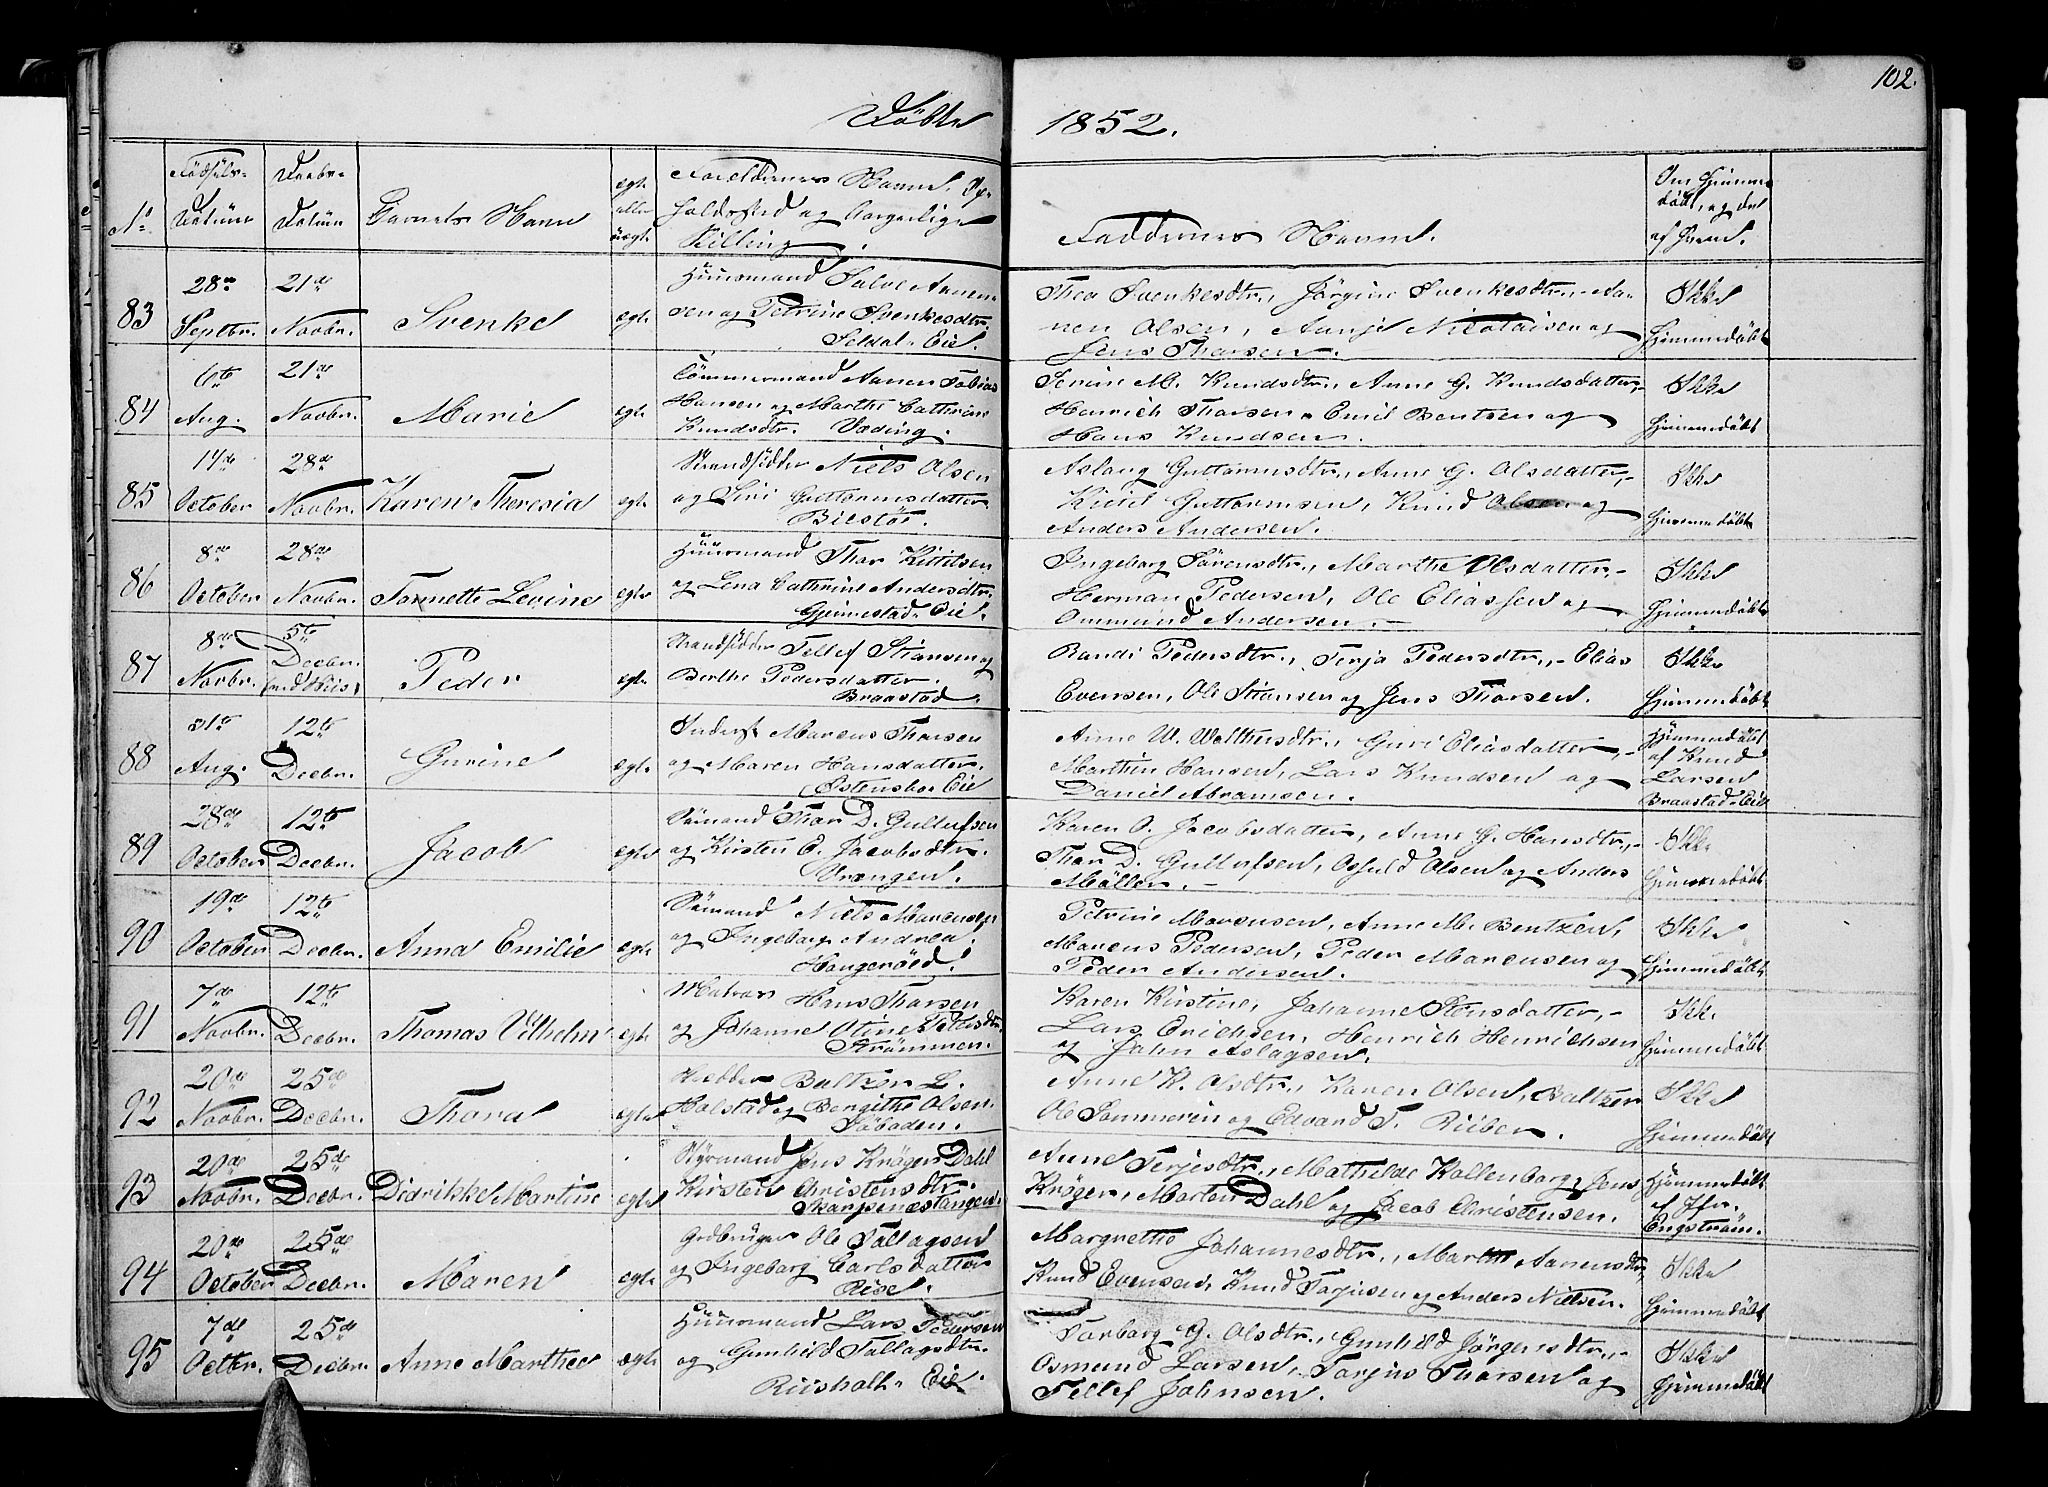 102.
Döbte 1852.
No. Födsels- Datum Daabs- Datum Barnets Navn egte eller uegte Forældrenes Navne, Op-
holdssted og borgerlige
Stilling. Faddernes Navne. Om Hjemme-
döbt, og da
af hvem.
83 28de Septbr. 21de Novbr. Svenke egte
Huusmand Salve Aanen-
sen og Petrine Svenkesdtr.
Seldal-Eie.
Thea Svenkesdtr., Jörgine Svenkesdtr.,- Aa-
nen Olsen, Aanje Nicolaisen og
Jens Tharsen.
Ikke
Hjemmedöbt
84 6te Aug. 21de Novbr. Marie egte
Tömmermand Aanen Tobias
Hansen og Marthe Cathrine
Knudsdtr. Væding.
Serine M. Knudsdtr., Anne G. Knudsdatter,-
Henrich Tharsen, Emil Bentzen og
Hans Knudsen.
Ikke
Hjemmedöbt
85 14de October 28de Novbr. Karen Theresia egte
Strandsidder Niels Olsen
og Siri Guttormsdatter
Biestöe.
Aslaug Guttormsdtr., Anne G. Olsdatter,-
Kittil Guttormsen, Knud Olsen og
Anders Andersen.
Ikke
Hjemmedöbt
86 8de October 28de Novbr. Tonnette Levine egte
Huusmand Thor Kittilsen
og Lena Cathrine Andersdtr.
Gjennestad-Eie.
Ingeborg Sörensdtr., Marthe Olsdatter,-
Herman Pedersen, Ole Eliassen og
Ommund Andersen.-
Ikke
Hjemmedöbt
87 8de Novbr. 5te Decbr. Peder egte
Strandsidder Tellef Stiansen og
Berthe Pedersdatter.
Braastad
Randi Pedersdtr., Terja Pedersdtr.,- Elias
Evensen, Ole Stiansen og Jens Tharsen.
Ikke
Hjemmedöbt
88 31te Aug. 12te Decbr. Gurine egte
Inderst Marcus Tharsen
og Maren Hansdatter.
Østensbo-Eie
Anne W. Walthersdtr., Guri Eliasdatter,-
Marthin Hansen, Lars Knudsen og
Daniel Abramsen.
Hjemmedöbt
af Knud
Larsen
Braastad-Eie
89 28de October 12te Decbr. Jacob egte
Sömand Thor D. Gullufsen
og Kirsten E. Jacobsdtr.
Vrængen.
Karen O. Jacobsdatter, Anne G. Hansdtr.,-
Thor D. Gullufsen, Osfuld Olsen og Anders
Möller.-
Ikke
Hjemmedöbt
90 19de October 12te Decbr. Anna Emilie egte
Sömand Niels Marcussen
og Ingeborg Andrea.
Hougeröed.
Petrine Marcusen, Anne M. Bentzen,
Marcus Pedersen, Peder Marcusen og
Peder Andersen.
Ikke
Hjemmedöbt
91 7de Novbr. 12te Decbr. Thomas Vilhelm egte
Matros Hans Tharsen
og Johanne Oline Petersdtr.
Strömmen.
Karen Kirstine, Johanne Stensdatter,-
Lars Erichsen, Henrich Henrichsen
og John Aslagsen.
Ikke
Hjemmedöbt
92 20de Novbr. 25de Decbr. Thora egte
Baltzer L.
Holstad og Bergithe Olsen.
Söboden.
Anne K. Olsdtr., Karen Olsen, Baltzer
Ole Sommeren og Edvard T. Riiber.
Ikke
Hjemmedöbt
93 20de Novbr. 25de Decbr. Didrikke Martine egte
Styrmand Jens Kröger Dahl
Kirsten Christensdtr.
Skarpenæstangen.
Anne Terjesdtr., Mathilde Kallenborg, Jens
Kröger, Morten Dahl og Jacob Christensen.
Hjemmedöbt
af Jfr.
Engström.
94 20de October 25de Decbr. Maren egte
Grdbruger Ole Tallagsen
og Ingeborg Carlsdatter
Rise.
Margrethe Johannesdtr., Marthe Aanensdtr,
Knud Evensen, Knud Torjusen og Anders Nielsen.
Ikke
Hjemmedöbt
95 7de Octbr. 25de Decbr. Anne Marthee egte
Huusmand Lars Pedersen
og Gunhild Tallagsdtr.
Riisholt-Eie.
Torborg G. Olsdtr., Gunhild Jörgensdtr.,-
Osmund Larsen, Torjus Tharsen og
Tellef Johnsen.
Ikke
Hjemmedöbt